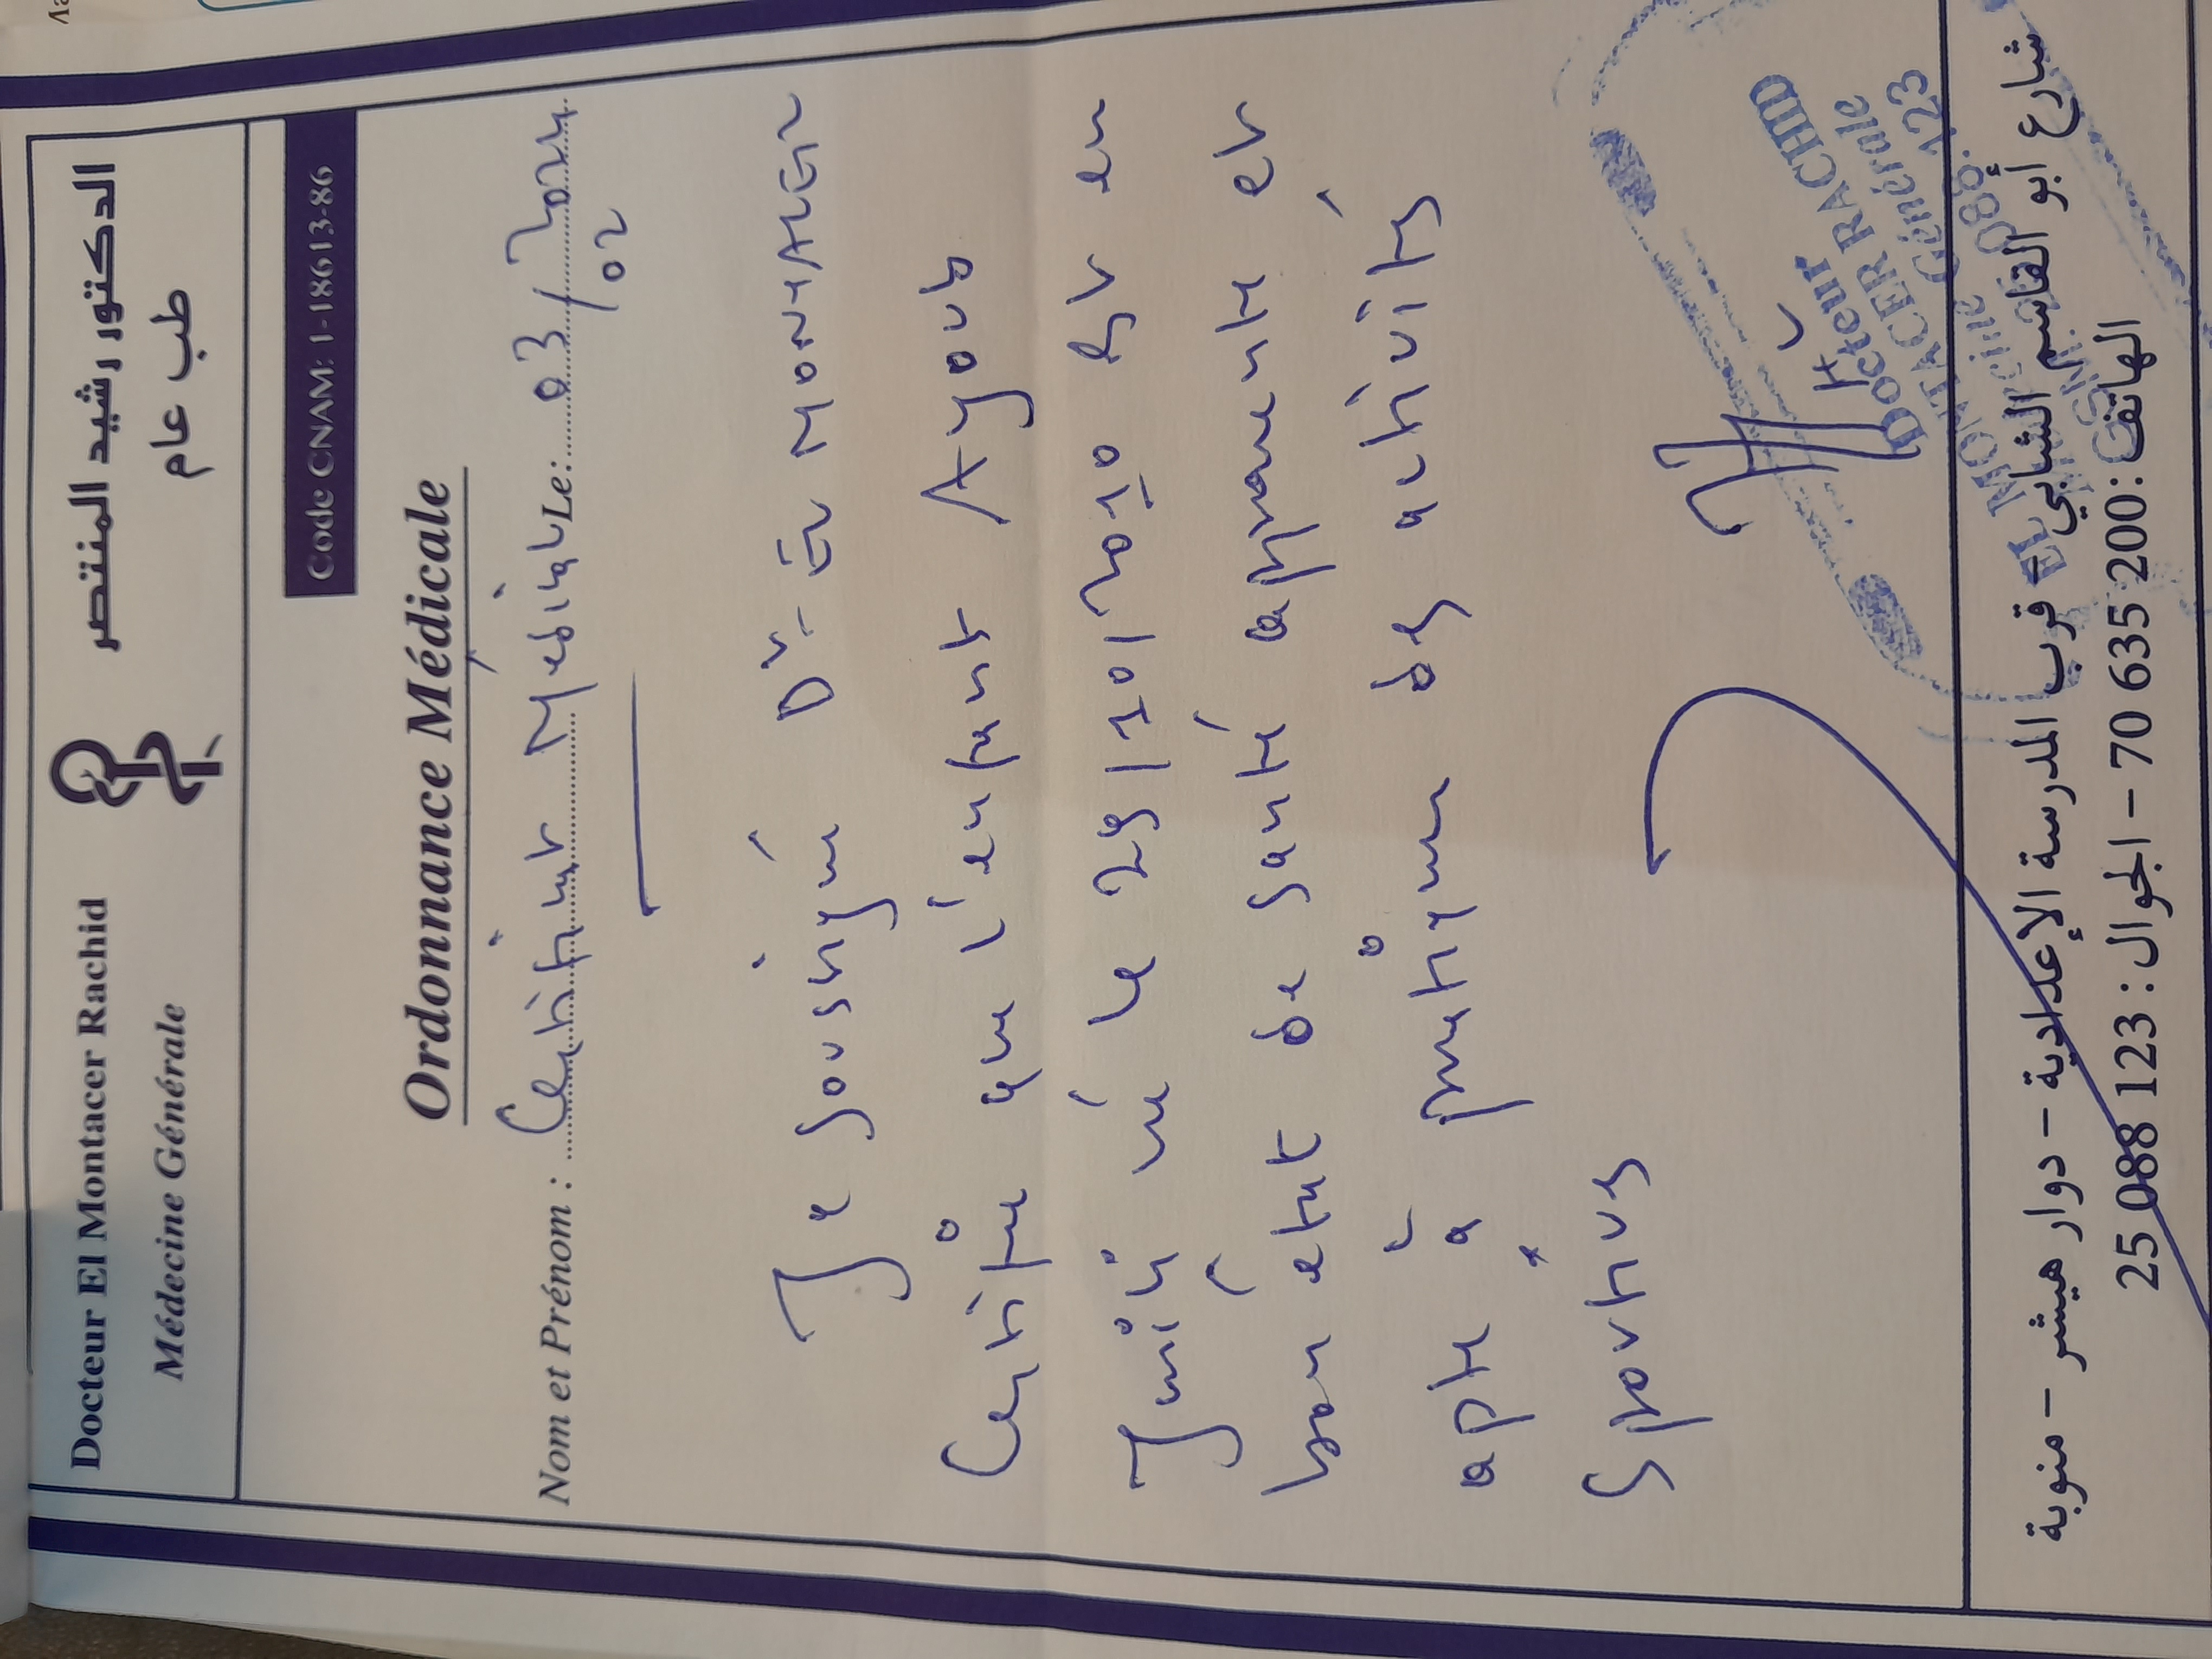 Docteur El Montacer Rachid
Médecine Générale
الدكتور رشيد المنتصر
طب عام
Code CNAM: 1-18613-86
Ordonnance Médicale
Nom et Prénom : Certificat Médical Le: 03/02/
Je soussigné Dr. El MONTACER
Certifie que l'enfant Ayoub
né le 29/10/2010 est en
bon état de santé apparente et
apte à pratiquer des activités
sportives
Docteur
EL MONTACER RACHID
Médecine Générale
GSM: 25.088.123
شارع أبو القاسم الشابي - قرب المدرسة الإعدادية - دوار هيشر - منوبة
الهاتف: 200 635 70 - الجوال: 123 088 25